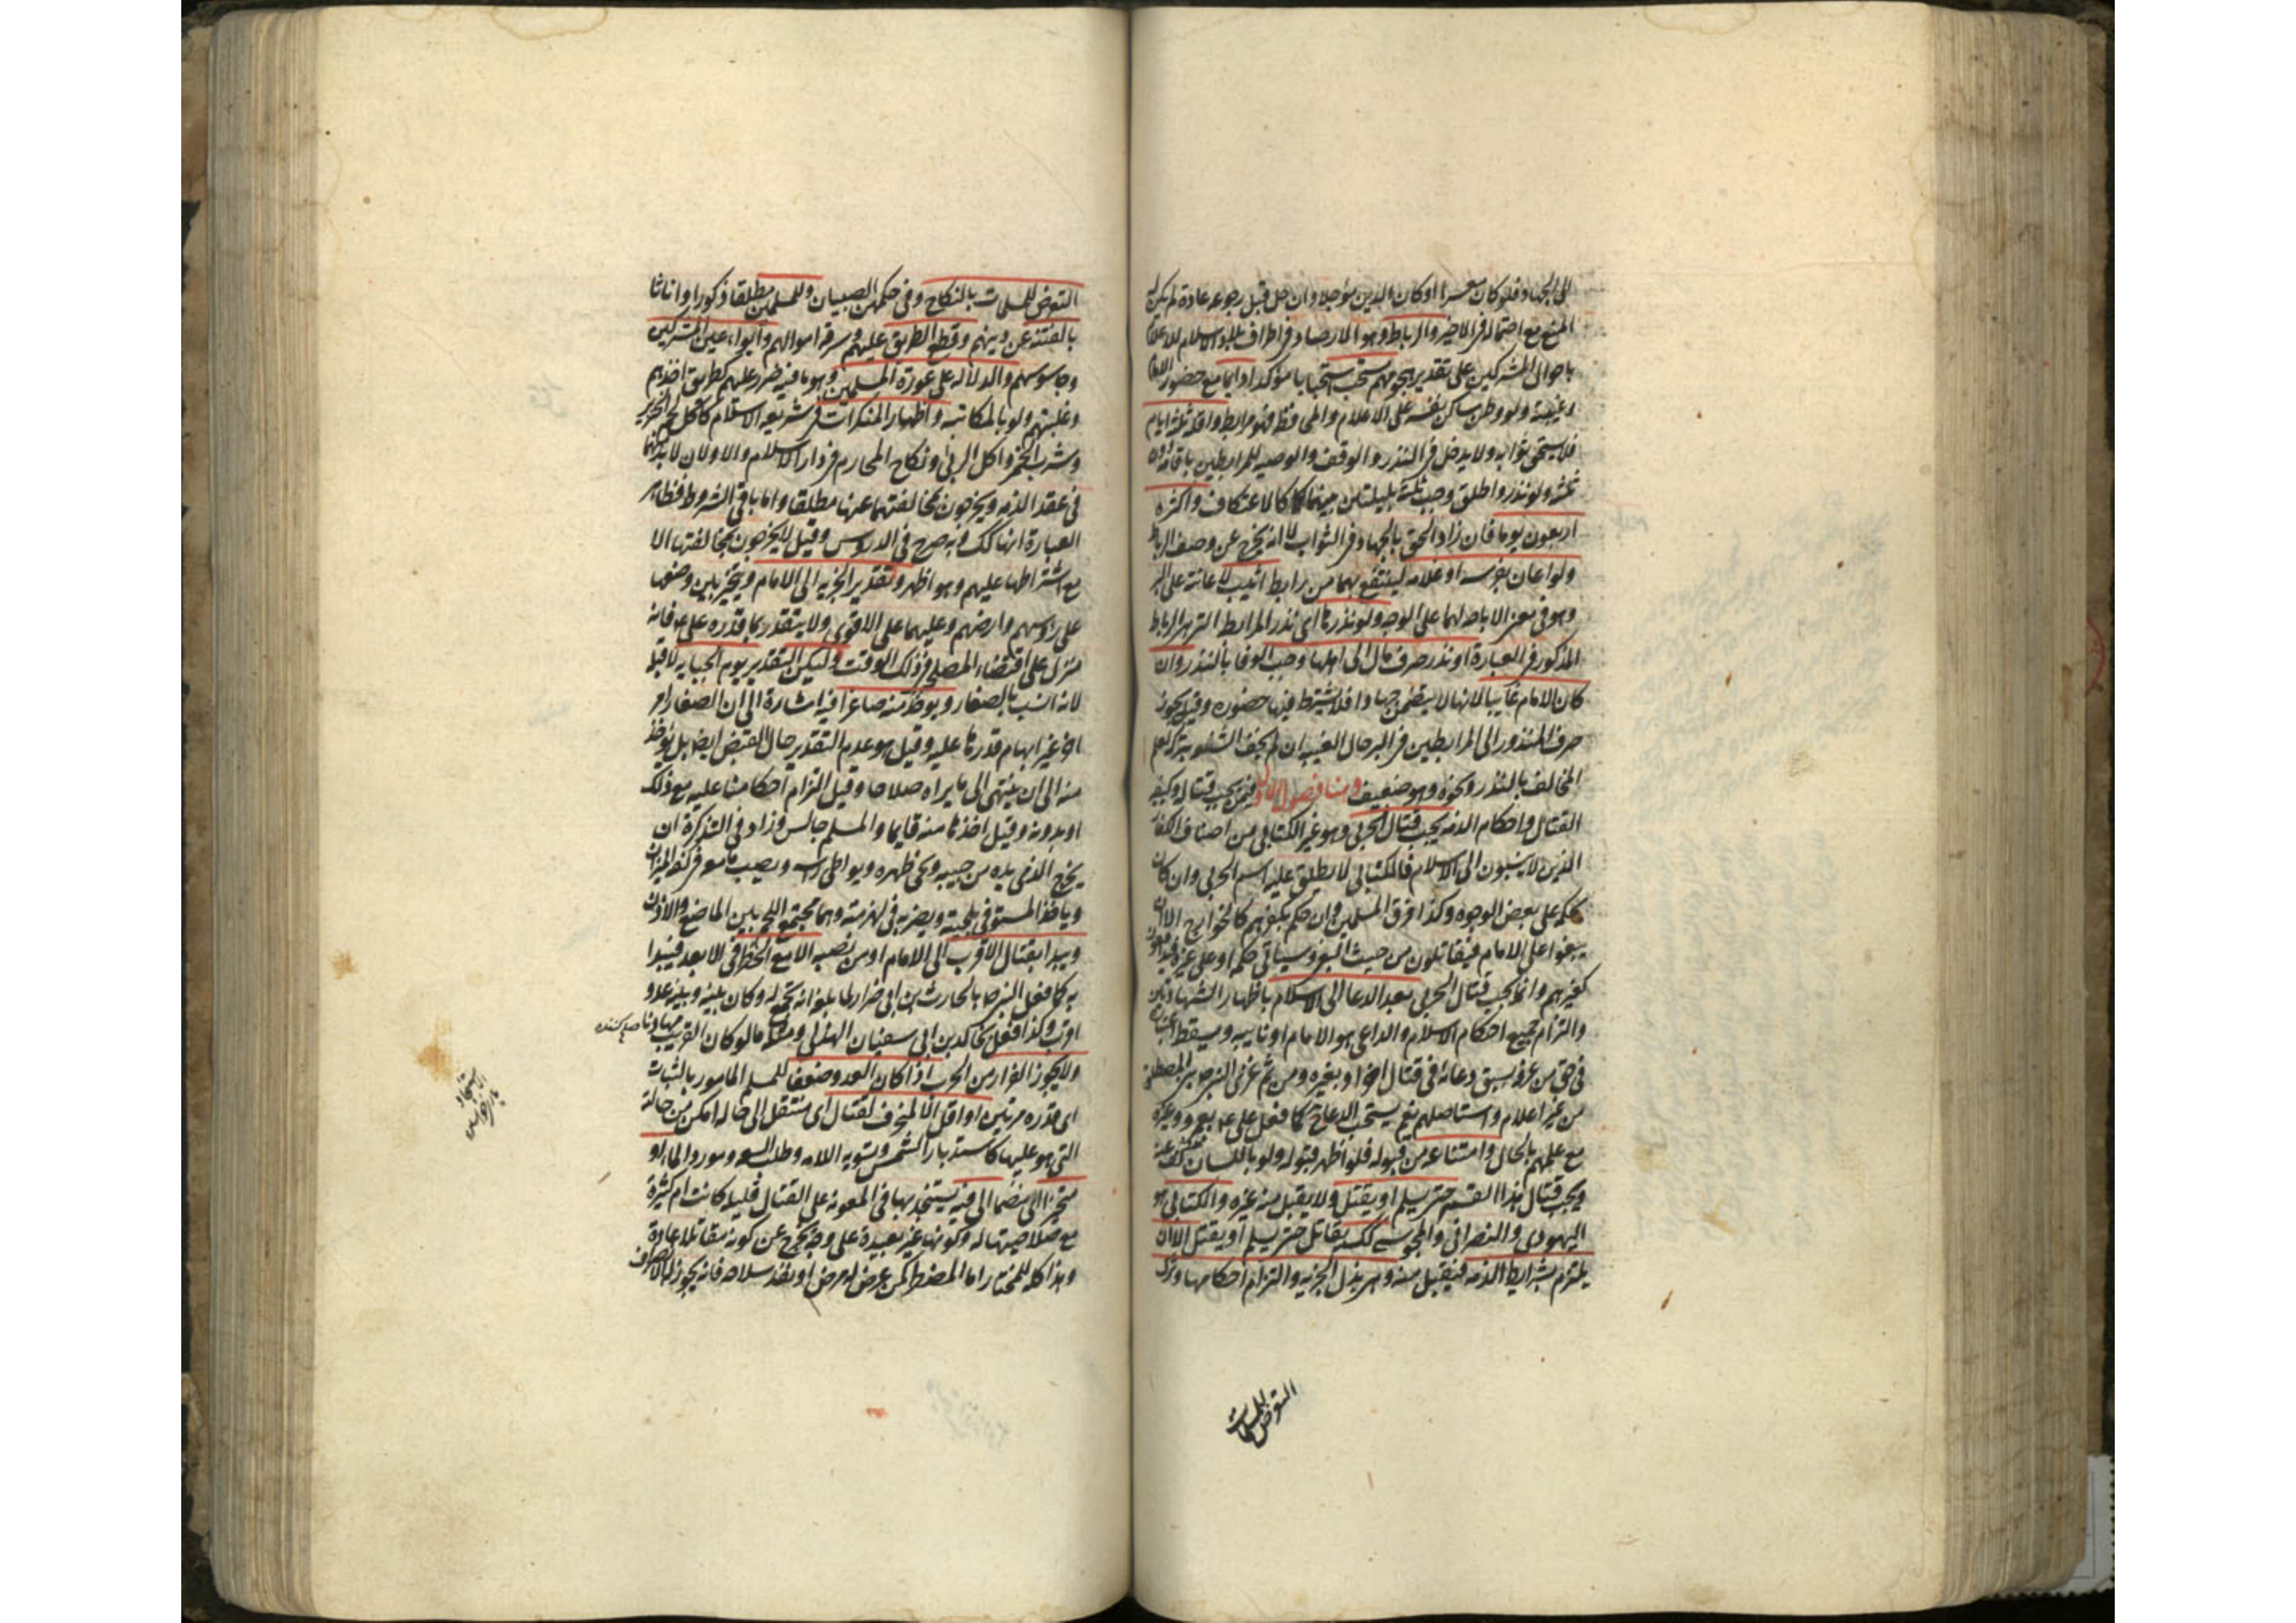 الى الجهاد فلو كان معسرا او كان الدين مؤجلا وان حل قبل رجوعه عادة لم يكن له
المنع مع احتماله في الاخير والرباط وهو الارصاد في اطراف بلاد الاسلام للاعلام
باحوال المشركين على تقدير هجومهم مستحب استحبابا مؤكدا دايما مع حضور الامام
وغيبته ولو وطن ساكن نفسه على الاعلام والمحافظة فهو مرابط واقله ثلثه ايام
فلا يستحق ثوابه ولا يدخل في النذر والوقف والوصيه للمرابطين باقامة دون
ثلثه ولو نذره واطلق وجب ثلثة بليلتين بينهما كالاعتكاف واكثره
اربعون يوما فان زاد الحق بالجهاد في الثواب لا انه يخرج عن وصف الرباط
ولو اعان بفرسه او غلامه لينتفع بهما من يرابط اثيب لاعانته على البر
وهو في معنى الاباحه لهما على الوجه ولو نذرها اى نذر المرابطه التي هي الرباط
المذكور في العبارة او نذر صرف مال الى اهلها وجب الوفا بالنذر وان
كان الامام غايبا لانها لا يتضمن جهادا فلا يشترط فيها حضوره وقيل يجوز
صرف المنذور الى المرابطين في البر حال الغيبه ان لم يخف الشنعه بتركه لعلم
المخالف بالنذر ونحوه وهو ضعيف وهنا فصول الاول فيمن يجب قتاله وكيفيه
القتال واحكام الذمه يجب قتال الحربي وهو غير الكتابي من اصناف الكفار
الذين لا ينسبون الى الاسلام فالكتابي لا يطلق عليه اسم الحربي وان كان
بحكمه على بعض الوجوه وكذا فرق المسلمين وان حكم بكفرهم كالخوارج الا ان
يبغوا على الامام فيقاتلون من حيث البغى وسياتي حكمه او على غيره فيدافعون
كغيرهم وانما يجب قتال الحربي بعد الدعا الى الاسلام باظهار الشهادتين
والتزام جميع احكام الاسلام والداعى هو الامام او نايبه ويسقط اعتباره
في حق من عرفه بسبق دعائه في قتال اخر او بغيره ومن ثم غزى النبي ص بني المصطلق
من غير اعلام واستاصلهم نعم يستحب الدعاء ح كما فعل على ع بعمرو وغيره
مع علمهم بالحال وامتناعه من قبوله فلو اظهر قبوله ولو باللسان كف عنه
ويجب قتال هذا القسم حتى يسلم او يقتل ولا يقبل منه غيره والكتابي هو
اليهودي والنصراني والمجوسي كك يقاتل حتى يسلم او يقتل الا ان
يلتزم بشرايط الذمه فيقبل منه وهي بذل الجزيه والتزام احكامها وترك
التعرض للمسلمات
التعرض للمسلمات بالنكاح وفي حكمهن الصبيان وللمسلمين مطلقا ذكورا واناثا
بالفتنه عن دينهم وقطع الطريق عليهم وسرقه اموالهم وايواء عين المشركين
وجاسوسهم والدلاله على عورة المسلمين وهو ما فيه ضرر عليهم كطريق اخذهم
وغيلتهم ولو بالمكاتبه واظهار المنكرات في شريعه الاسلام كاكل لحم الخنزير
وشرب الخمر واكل الربا ونكاح المحارم في دار الاسلام والاولان لا بد منهما
في عقد الذمه ويخرجون بمخالفتهما عنها مطلقا واما باقى الشروط فظاهر
العبارة انها كك وبه صرح في الدروس وقيل لا يخرجون بمخالفتها الا
مع اشتراطها عليهم وهو اظهر وتقدير الجزيه الى الامام ويتخير بين وضعها
على رؤسهم وارضهم وعليهما على الاقوى ولا يتقدر بما قدره على ع فانه
منزل على اقتضاء المصلحه في ذلك الوقت وليكن التقدير يوم الجبايه لا قبله
لانه انسب بالصغار ويوخذ منه صاغرا فيه اشارة الى ان الصغار امر
اخر غير ابهام قدرها عليه وقيل هو عدم التقدير حال القبض ايضا بل يوخذ
منه الى ان ينتهى الى ما يراه صلاحا وقيل التزام احكامنا عليه مع ذلك
او بدونه وقيل اخذها منه قايما والمسلم جالس وزاد في التذكرة ان
يخرج الذمى يده من جيبه ويحنى ظهره ويواطى راسه ويصب ما معه في كفه الميزان
وياخذ المستوفى بلحيته ويضربه في لهزمته وهما مجتمع اللحم بين الماضغ والاذن
ويبدا بقتال الاقرب الى الامام او من نصبه الا مع الخطر في الابعد فيبدا
به كما فعل النبي ص بالحارث بن ابي ضرار لما بلغه انه يجمع له وكان بينه وبينه عدو
اقرب وكذا فعل بخالد بن ابي سفيان الهذلي ومثله ما لو كان القريب مهادنا
صلح كننده
ولا يجوز الفرار من الحرب اذا كان العدو ضعفا للمسلم المامور بالثبات
اى قدره مرتين او اقل الا لمتحرف لقتال اى منتقل الى حاله امكن من حالته
التي هو عليها كاستدبار الشمس وتسويه اللامه وطلب السعه ومورد الماء او
متحيز الى منضما الى فئه يستنجد بها في المعونه على القتال قليله كانت ام كثيرة
مع صلاحيتها له وكونها غير بعيدة على وجه يخرج عن كونه مقاتلا عادة
وهذا كله للمختار اما المضطر كمن عرض له مرض او فقد سلاحه فانه يجوز له الانصراف